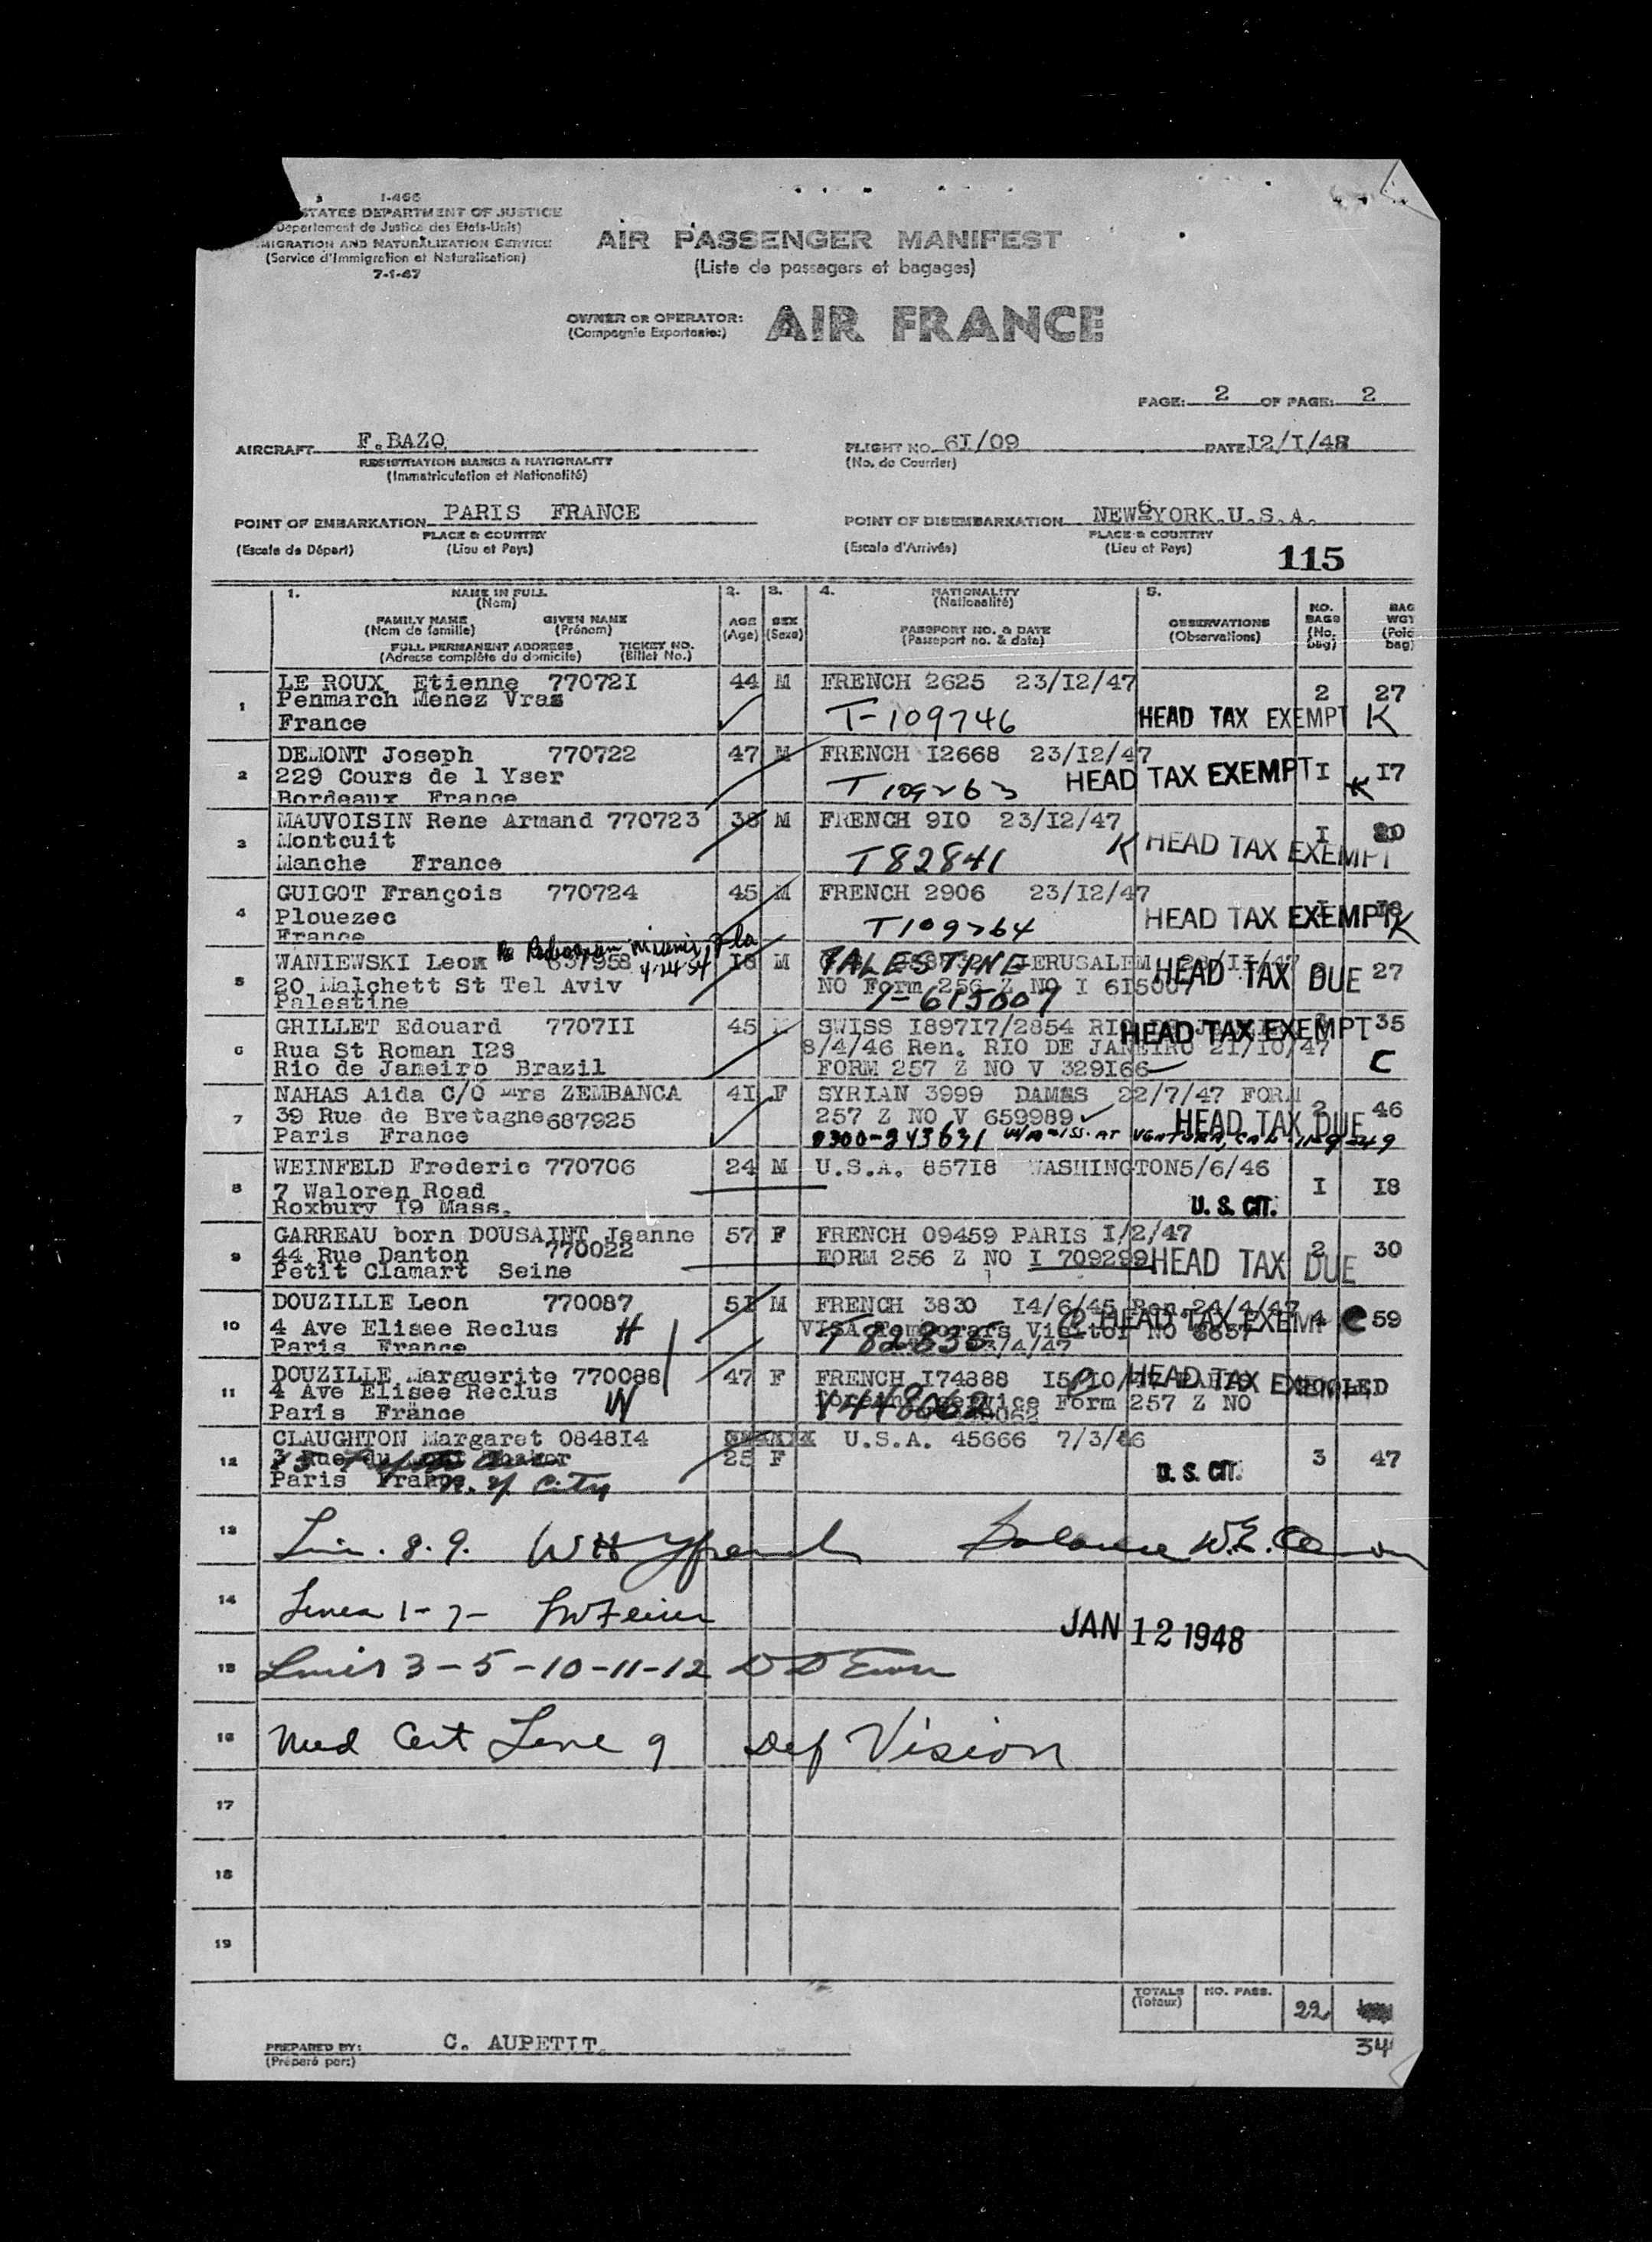 I-466
STATES DEPARTMENT OF JUSTICE
Departement de Justice des Etats-Unis)
MIGRATION AND NATURALIZATION SERVICE
(Service d'Immigration et Naturalisation)
7-1-47
AIR PASSENGER MANIFEST
(Liste de passagers et bagages)
OWNER OR OPERATOR: AIR FRANCE
(Compagnie Exportante:)
PAGE: 2 OF PAGE: 2
AIRCRAFT F.BAZQ FLIGHT NO. 6I/09 DATE I2/I/48
REGISTRATION MARKS & NATIONALITY (No. de Courrier)
(Immatriculation et Nationalité)
POINT OF EMBARKATION PARIS FRANCE POINT OF DISEMBARKATION NEW YORK.U.S.A.
PLACE & COUNTRY PLACE & COUNTRY
(Escale de Départ) (Lieu et Pays) (Escale d'Arrivée) (Lieu et Pays) 115
1. NAME IN FULL 2. 3. 4. NATIONALITY 5. NO. BAG
(Nom) (Nationalité) BAGS WGT
FAMILY NAME GIVEN NAME AGE SEX PASSPORT NO. & DATE OBSERVATIONS (No. (Poid
(Nom de famille) (Prénom) (Age) (Sexe) (Passeport no. & date) (Observations) bag) bag)
FULL PERMANENT ADDRESS TICKET NO.
(Adresse complète du domicile) (Billet No.)
1 LE ROUX Etienne 77072I 44 M FRENCH 2625 23/I2/47 2 27
Penmarch Menez Vras
France T-109746 HEAD TAX EXEMPT K
2 DEMONT Joseph 770722 47 M FRENCH I2668 23/I2/47
229 Cours de l Yser HEAD TAX EXEMPT I I7
Bordeaux France T109763 K
3 MAUVOISIN Rene Armand 770723 38 M FRENCH 9I0 23/I2/47 I
Montcuit K HEAD TAX EXEMPT
Manche France T82841
4 GUIGOT François 770724 45 M FRENCH 2906 23/I2/47 I I8
Plouezec HEAD TAX EXEMPT K
France T109764
Miami, Fla
4-24-54
5 WANIEWSKI Leon 637958 I8 M PALESTINE JERUSALEM HEAD TAX DUE 27
20 Malchett St Tel Aviv NO Form 256 Z NO I 6I5007
Palestine I-615007
6 GRILLET Edouard 7707II 45 M SWISS I897I7/2854 RIO DE HEAD TAX EXEMPT 35
Rua St Roman I23 8/4/46 Ren. RIO DE JANEIRO 21/10/47
Rio de Janeiro Brazil FORM 257 Z NO V 329I66 C
7 NAHAS Aida C/O Mrs ZEMBANCA 4I F SYRIAN 3999 DAMAS 22/7/47 FORM 2 46
39 Rue de Bretagne 687925 257 Z NO V 659989 HEAD TAX DUE
Paris France 0300-243631 VENTURA, CAL. 11-9-49
8 WEINFELD Frederic 770706 24 M U.S.A. 857I8 WASHINGTON5/6/46 I I8
7 Waloren Road
Roxbury I9 Mass. U. S. CIT.
9 GARREAU born DOUSAINT Jeanne 57 F FRENCH 09459 PARIS I/2/47 2 30
44 Rue Danton 770022 FORM 256 Z NO I 709299 HEAD TAX DUE
Petit Clamart Seine
10 DOUZILLE Leon 770087 5I M FRENCH 3830 I4/6/45 Ren.24/4/47 4 59
4 Ave Elisee Reclus H VISA Temporary Visitor No HEAD TAX EXEMPT
Paris France T 82835
11 DOUZILLE Marguerite 770088 47 F FRENCH I74888 HEAD TAX EXEMPT POOLED
4 Ave Elisee Reclus W Service Form 257 Z NO
Paris France V448062
12 CLAUGHTON Margaret 0848I4 25 F U.S.A. 45666 7/3/46 3 47
Paris France N.Y. City U. S. CIT.
13 8.9. Balance W.E.
14 Lines 1-7-
JAN 12 1948
15 Lines 3-5-10-11-12
16 Med Cert Line 9 Def Vision
17
18
19
TOTALS NO. PASS. 22
(Totaux)
34
PREPARED BY: C. AUPETIT.
(Préparé par:)